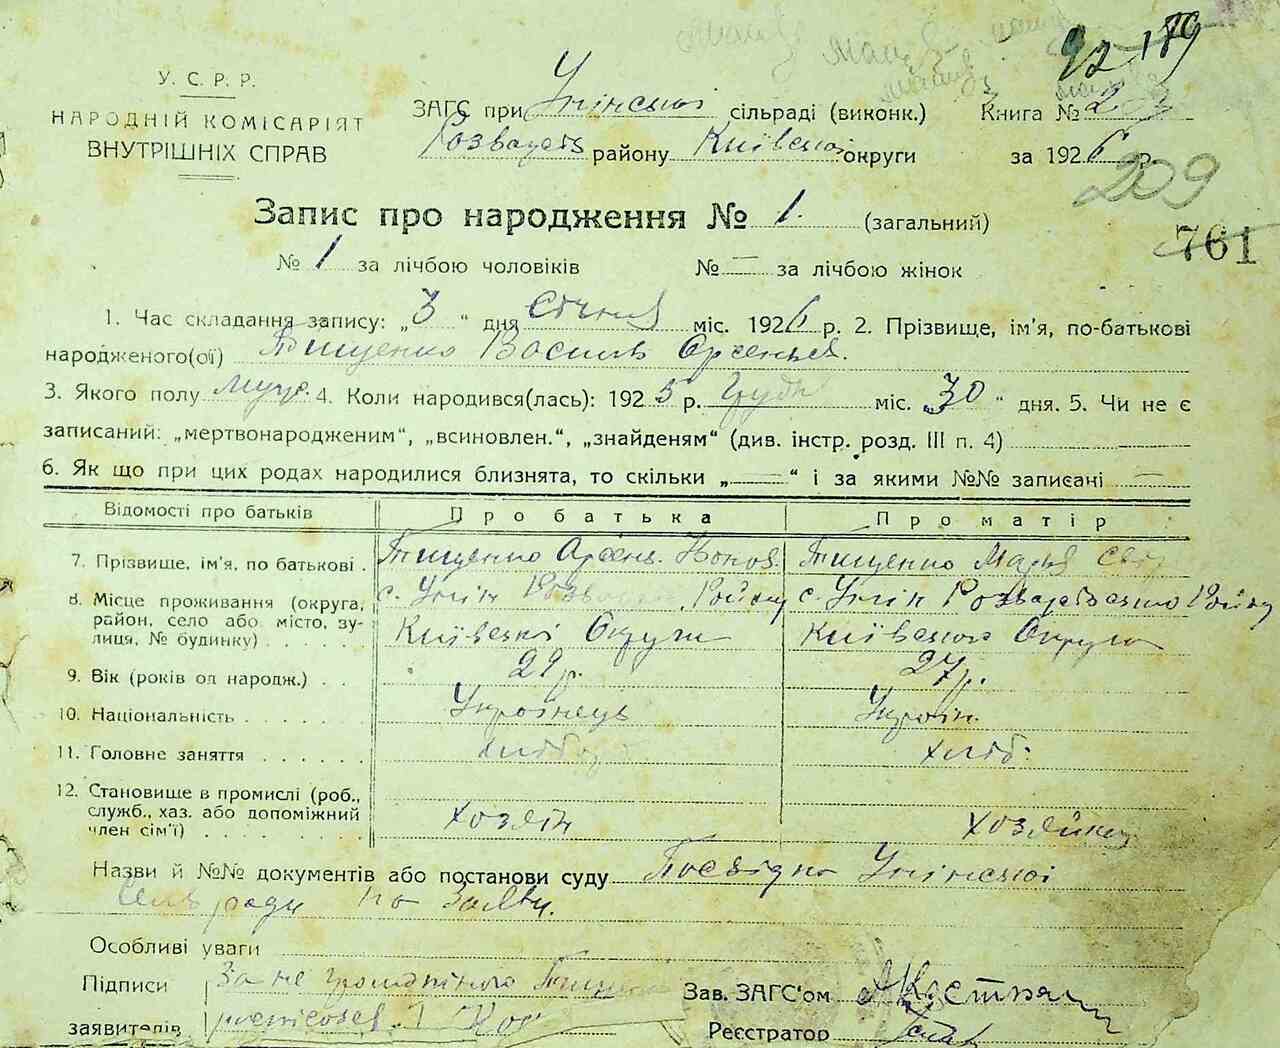 92 179
У. С. Р. Р.
НАРОДНІЙ КОМІСАРІЯТ
ВНУТРІШНІХ СПРАВ
ЗАГС при Унінської сільраді (виконк.) Книга №
Розважев району Київської округи за 1926 р.
209
Запис про народження № 1. (загальний)
761
№ 1 за лічбою чоловіків № — за лічбою жінок
1. Час складання запису: „3“ дня Січня міс. 1926 р. 2. Прізвище, ім'я, по-батькові
народженого(ої) Тищенко Василь Арсеньев.
3. Якого полу муж. 4. Коли народився(лась): 1925 р. Грудн міс. „30“ дня. 5. Чи не є
записаний: „мертвонародженим“, „всиновлен.“, „знайденям“ (див. інстр. розд. III п. 4)
6. Як що при цих родах народилися близнята, то скільки „—“ і за якими №№ записані —
Відомості про батьків Про батька Про матір
7. Прізвище, ім'я, по батькові . Тищенко Арсень Тищенко Марья
8. Місце проживання (округа, район, село або місто, вулиця, № будинку) с. Унін Розва Району Київської Округи с. Унін Розважевського Району Київського Округа
9. Вік (років од народж.) . . 29 р. 27 р.
10. Національність . . . . . . . Українець Україн.
11. Головне заняття . . . . . . хлібороб хліб.
12. Становище в промислі (роб., служб., хаз. або допоміжний член сім'ї) . . . . . . . . хозяін хозяйка
Назви й №№ документів або постанови суду Посвідка Унінської
Сель ради по Заяви.
Особливі уваги
Підписи За не грамотного Тищенко Зав. ЗАГС'ом
заявителів росписовся Реєстратор